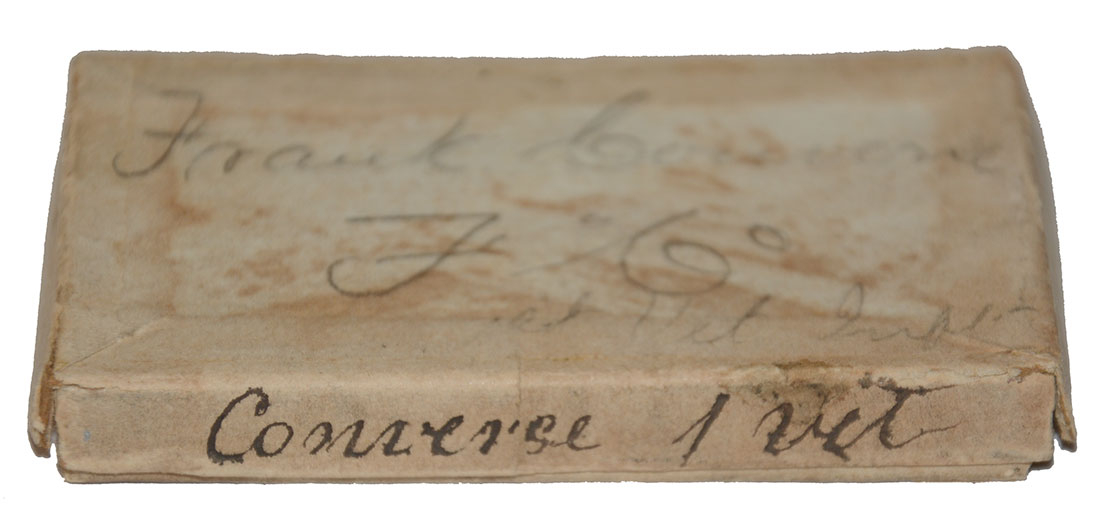 Frank Converse
F C
Vet
Converse 1 Vet